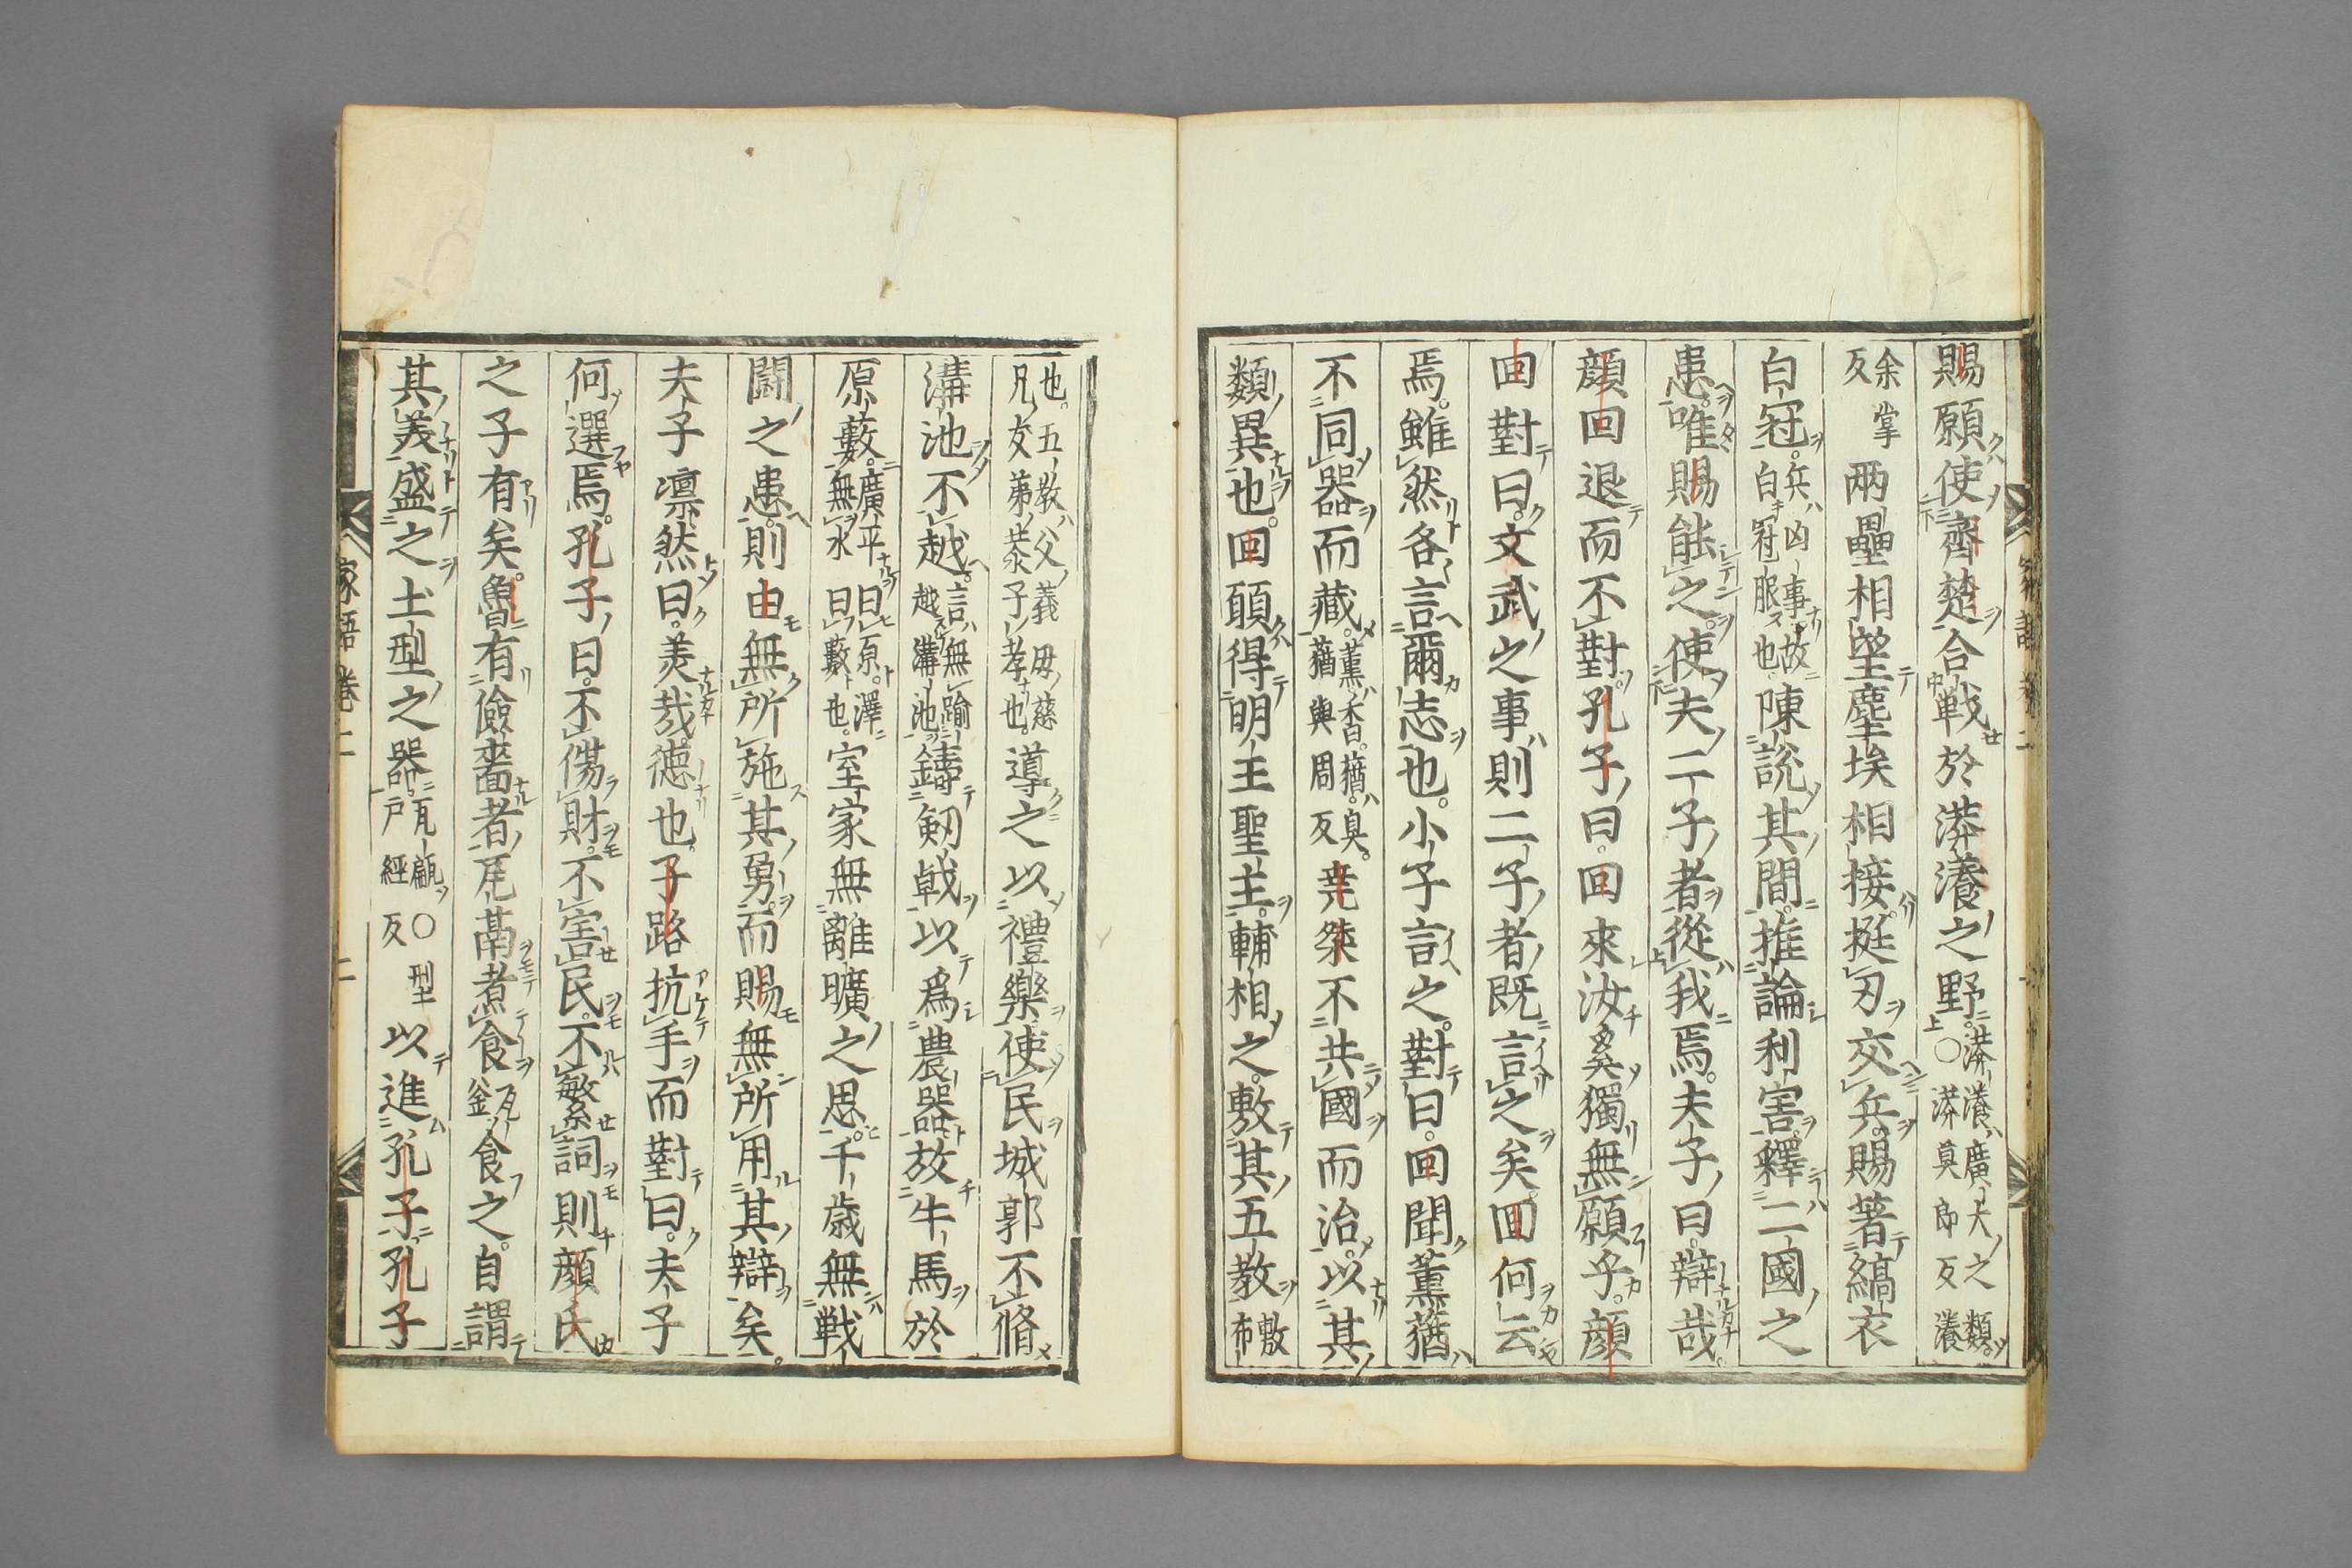 賜願使齊楚合戰於漭瀁之野漭瀁廣大之類○漭莫郎反瀁
余掌反兩壘相望塵埃相接挺刃交兵賜著縞衣
白冠兵凶事故白冠服也陳説其間推論利害釋二國之
患唯賜能之使夫二子者從我焉夫子曰辯哉
顔回退而不對孔子曰回來汝奚獨無願乎顔
回對曰文武之事則二子者既言之矣回何云
焉雖然各言爾志也小子言之對曰回聞薫蕕
不同器而藏薫香蕕臭蕕與周反堯桀不共國而治以其
類異也回願得明王聖主輔相之敷其五教敷布
也五教父義母慈兄友弟恭子孝也導之以禮樂使民城郭不脩
溝池不越言無踰越溝池鑄劒戟以爲農器放牛馬於
原藪廣平曰原澤無水曰藪也室家無離曠之思千歳無戰
鬪之患則由無所施其勇而賜無所用其辯矣
夫子凛然曰美哉德也子路抗手而對曰夫子
何選焉孔子曰不傷財不害民不繁詞則顔氏
之子有矣魯有儉嗇者瓦鬲煮食瓦釜食之自謂
其美盛之土型之器瓦甂○型戸經反以進孔子孔子
家語卷二